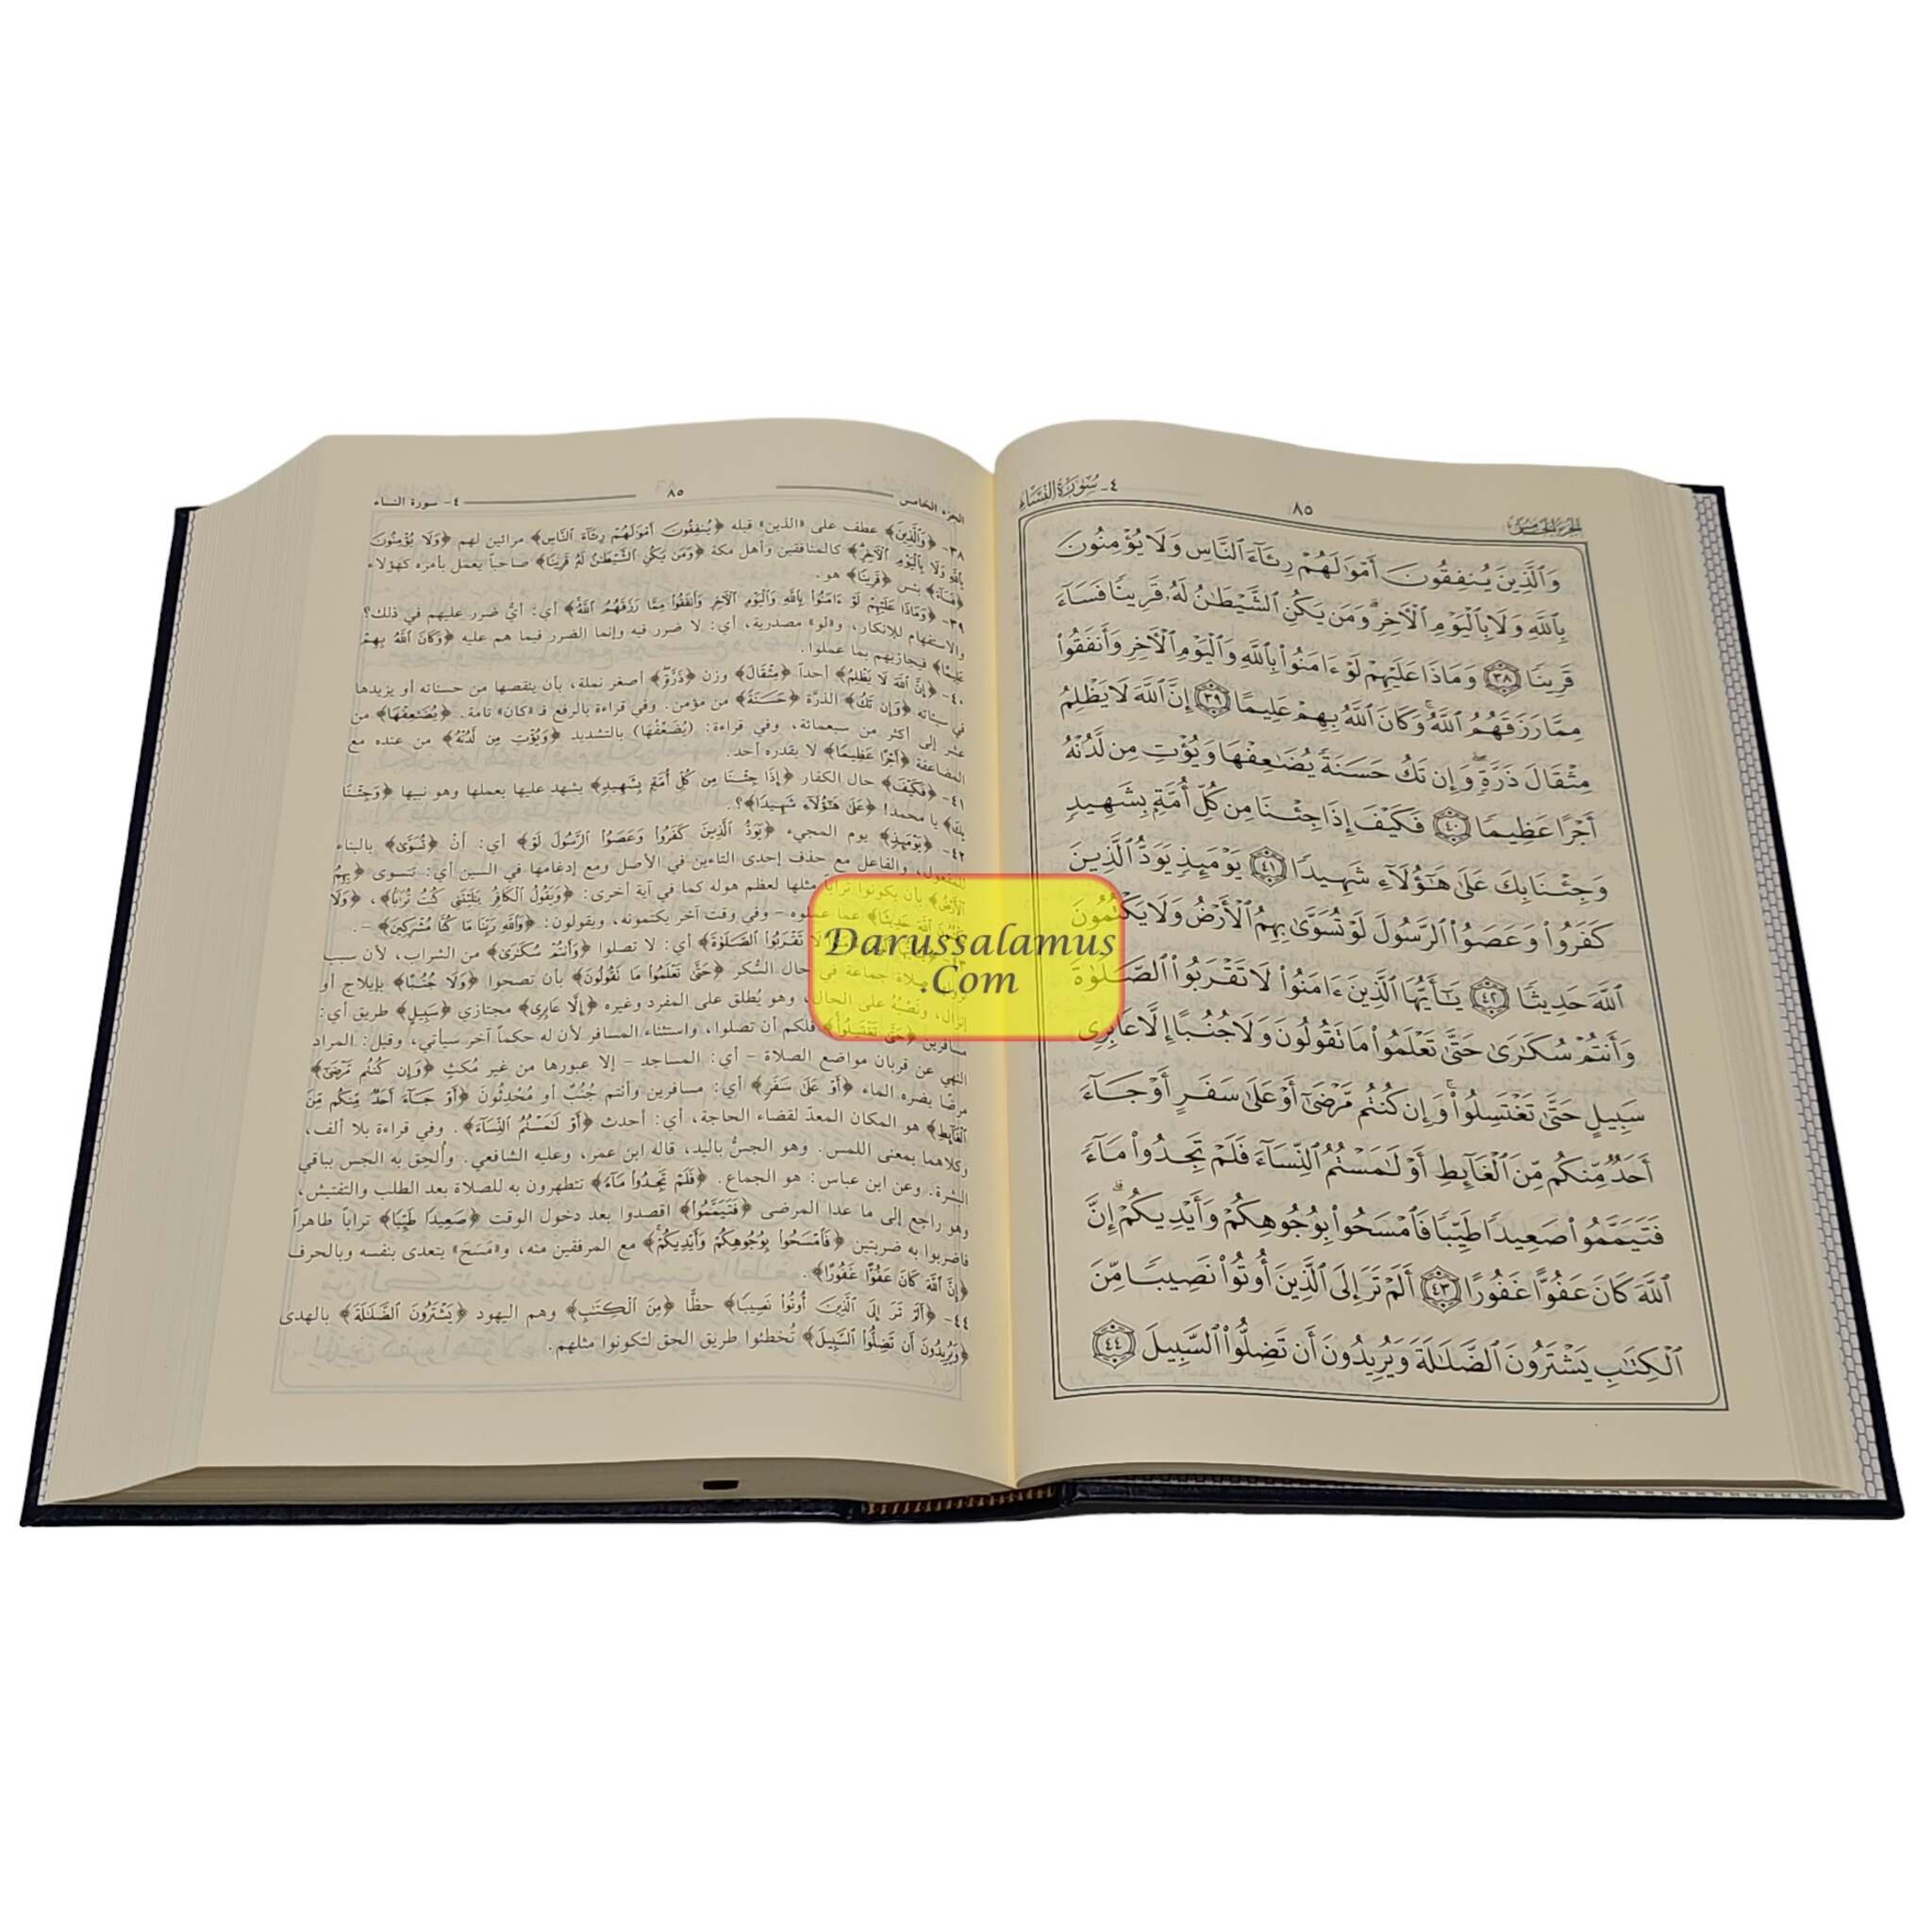 الجزء الخامس
٨٥
٤- سورة النساء
وَٱلَّذِينَ يُنفِقُونَ أَمۡوَٰلَهُمۡ رِئَآءَ ٱلنَّاسِ وَلَا يُؤۡمِنُونَ
بِٱللَّهِ وَلَا بِٱلۡيَوۡمِ ٱلۡأٓخِرِۗ وَمَن يَكُنِ ٱلشَّيۡطَٰنُ لَهُۥ قَرِينٗا فَسَآءَ
قَرِينٗا ٣٨ وَمَاذَا عَلَيۡهِمۡ لَوۡ ءَامَنُواْ بِٱللَّهِ وَٱلۡيَوۡمِ ٱلۡأٓخِرِ وَأَنفَقُواْ
مِمَّا رَزَقَهُمُ ٱللَّهُۚ وَكَانَ ٱللَّهُ بِهِمۡ عَلِيمًا ٣٩ إِنَّ ٱللَّهَ لَا يَظۡلِمُ
مِثۡقَالَ ذَرَّةٖۖ وَإِن تَكُ حَسَنَةٗ يُضَٰعِفۡهَا وَيُؤۡتِ مِن لَّدُنۡهُ
أَجۡرًا عَظِيمٗا ٤٠ فَكَيۡفَ إِذَا جِئۡنَا مِن كُلِّ أُمَّةِۭ بِشَهِيدٖ
وَجِئۡنَا بِكَ عَلَىٰ هَٰٓؤُلَآءِ شَهِيدٗا ٤١ يَوۡمَئِذٖ يَوَدُّ ٱلَّذِينَ
كَفَرُواْ وَعَصَوُاْ ٱلرَّسُولَ لَوۡ تُسَوَّىٰ بِهِمُ ٱلۡأَرۡضُ وَلَا يَكۡتُمُونَ
ٱللَّهَ حَدِيثٗا ٤٢ يَٰٓأَيُّهَا ٱلَّذِينَ ءَامَنُواْ لَا تَقۡرَبُواْ ٱلصَّلَوٰةَ
وَأَنتُمۡ سُكَٰرَىٰ حَتَّىٰ تَعۡلَمُواْ مَا تَقُولُونَ وَلَا جُنُبًا إِلَّا عَابِرِي
سَبِيلٍ حَتَّىٰ تَغۡتَسِلُواْۚ وَإِن كُنتُم مَّرۡضَىٰٓ أَوۡ عَلَىٰ سَفَرٍ أَوۡ جَآءَ
أَحَدٞ مِّنكُم مِّنَ ٱلۡغَآئِطِ أَوۡ لَٰمَسۡتُمُ ٱلنِّسَآءَ فَلَمۡ تَجِدُواْ مَآءٗ
فَتَيَمَّمُواْ صَعِيدٗا طَيِّبٗا فَٱمۡسَحُواْ بِوُجُوهِكُمۡ وَأَيۡدِيكُمۡۗ إِنَّ
ٱللَّهَ كَانَ عَفُوًّا غَفُورًا ٤٣ أَلَمۡ تَرَ إِلَى ٱلَّذِينَ أُوتُواْ نَصِيبٗا مِّنَ
ٱلۡكِتَٰبِ يَشۡتَرُونَ ٱلضَّلَٰلَةَ وَيُرِيدُونَ أَن تَضِلُّواْ ٱلسَّبِيلَ ٤٤
الجزء الخامس
٨٥
٤- سورة النساء
٣٨- ﴿وَٱلَّذِينَ﴾ عطف على «الذين» قبله ﴿يُنفِقُونَ أَمْوَٰلَهُمْ رِئَآءَ ٱلنَّاسِ﴾ مرائين لهم ﴿وَلَا يُؤْمِنُونَ
بِٱللَّهِ وَلَا بِٱلْيَوْمِ ٱلْأَخِرِ﴾ كالمنافقين وأهل مكة ﴿وَمَن يَكُنِ ٱلشَّيْطَٰنُ لَهُ قَرِينًا﴾ صاحباً يعمل بأمره كهؤلاء
﴿فَسَآءَ﴾ بئس ﴿قَرِينًا﴾ هو.
٣٩- ﴿وَمَاذَا عَلَيْهِمْ لَوْ ءَامَنُوا۟ بِٱللَّهِ وَٱلْيَوْمِ ٱلْأَخِرِ وَأَنفَقُوا۟ مِمَّا رَزَقَهُمُ ٱللَّهُ﴾ أي: أيُّ ضرر عليهم في ذلك؟
والاستفهام للإنكار، و«لو» مصدرية، أي: لا ضرر فيه وإنما الضرر فيما هم عليه ﴿وَكَانَ ٱللَّهُ بِهِمْ
عَلِيمًا﴾ فيجازيهم بما عملوا.
٤٠- ﴿إِنَّ ٱللَّهَ لَا يَظْلِمُ﴾ أحداً ﴿مِثْقَالَ﴾ وزن ﴿ذَرَّةٍ﴾ أصغر نملة، بأن ينقصها من حسناته أو يزيدها
في سيئاته ﴿وَإِن تَكُ﴾ الذرَّة ﴿حَسَنَةً﴾ من مؤمن. وفي قراءة بالرفع فـ «كان» تامة. ﴿يُضَٰعِفْهَا﴾ من
عشر إلى أكثر من سبعمائة، وفي قراءة: (يُضَعِّفْهَا) بالتشديد ﴿وَيُؤْتِ مِن لَّدُنْهُ﴾ من عنده مع
المضاعفة ﴿أَجْرًا عَظِيمًا﴾ لا يقدره أحد.
٤١- ﴿فَكَيْفَ﴾ حال الكفار ﴿إِذَا جِئْنَا مِن كُلِّ أُمَّةٍ بِشَهِيدٍ﴾ يشهد عليها بعملها وهو نبيها ﴿وَجِئْنَا
بِكَ﴾ يا محمد! ﴿عَلَىٰ هَٰٓؤُلَآءِ شَهِيدًا﴾؟.
٤٢- ﴿يَوْمَئِذٍ﴾ يوم المجيء ﴿يَوَدُّ ٱلَّذِينَ كَفَرُوا۟ وَعَصَوُا۟ ٱلرَّسُولَ لَوْ﴾ أي: أنْ ﴿تُسَوَّىٰ﴾ بالبناء
للمفعول، والفاعل مع حذف إحدى التاءين في الأصل ومع إدغامها في السين أي: تتسوى ﴿بِهِمُ
ٱلْأَرْضُ﴾ بأن يكونوا تراباً مثلها لعظم هوله كما في آية أخرى: ﴿وَيَقُولُ ٱلْكَافِرُ يَٰلَيْتَنِى كُنتُ تُرَٰبًا﴾، ﴿وَلَا
يَكْتُمُونَ ٱللَّهَ حَدِيثًا﴾ عما عملوه – وفي وقت آخر يكتمونه، ويقولون: ﴿وَٱللَّهِ رَبِّنَا مَا كُنَّا مُشْرِكِينَ﴾ –.
لَا تَقْرَبُوا۟ ٱلصَّلَوٰةَ﴾ أي: لا تصلوا ﴿وَأَنتُمْ سُكَٰرَىٰ﴾ من الشراب، لأن سبب
صلاة جماعة في حال السُّكر ﴿حَتَّىٰ تَعْلَمُوا۟ مَا تَقُولُونَ﴾ بأن تصحوا ﴿وَلَا جُنُبًا﴾ بإيلاج أو
إنزال، ونَصْبُهُ على الحال، وهو يُطلق على المفرد وغيره ﴿إِلَّا عَابِرِى﴾ مجتازي ﴿سَبِيلٍ﴾ طريق أي:
مسافرين ﴿حَتَّىٰ تَغْتَسِلُوا۟﴾ فلكم أن تصلوا، واستثناء المسافر لأن له حكماً آخر سيأتي، وقيل: المراد
النهي عن قربان مواضع الصلاة – أي: المساجد – إلا عبورها من غير مُكثٍ ﴿وَإِن كُنتُم مَّرْضَىٰٓ﴾
مرضًا يضره الماء ﴿أَوْ عَلَىٰ سَفَرٍ﴾ أي: مسافرين وأنتم جُنُبٌ أو مُحْدِثُونَ ﴿أَوْ جَآءَ أَحَدٌ مِّنكُم مِّنَ
ٱلْغَآئِطِ﴾ هو المكان المعدّ لقضاء الحاجة، أي: أحدث ﴿أَوْ لَٰمَسْتُمُ ٱلنِّسَآءَ﴾. وفي قراءة بلا ألف،
وكلاهما بمعنى اللمس. وهو الجسُّ باليد، قاله ابن عمر، وعليه الشافعي. وأُلحِق به الجَس بباقي
البشرة. وعن ابن عباس: هو الجماع. ﴿فَلَمْ تَجِدُوا۟ مَآءً﴾ تتطهرون به للصلاة بعد الطلب والتفتيش،
وهو راجع إلى ما عدا المرضى ﴿فَتَيَمَّمُوا۟﴾ اقصدوا بعد دخول الوقت ﴿صَعِيدًا طَيِّبًا﴾ تراباً طاهراً
فاضربوا به ضربتين ﴿فَٱمْسَحُوا۟ بِوُجُوهِكُمْ وَأَيْدِيكُمْ﴾ مع المرفقين منه، و«مَسَحَ» يتعدى بنفسه وبالحرف
﴿إِنَّ ٱللَّهَ كَانَ عَفُوًّا غَفُورًا﴾.
٤٤- ﴿أَلَمْ تَرَ إِلَى ٱلَّذِينَ أُوتُوا۟ نَصِيبًا﴾ حظًّا ﴿مِّنَ ٱلْكِتَٰبِ﴾ وهم اليهود ﴿يَشْتَرُونَ ٱلضَّلَٰلَةَ﴾ بالهدى
﴿وَيُرِيدُونَ أَن تَضِلُّوا۟ ٱلسَّبِيلَ﴾ تُخطئوا طريق الحق لتكونوا مثلهم.
Darussalamus
.Com